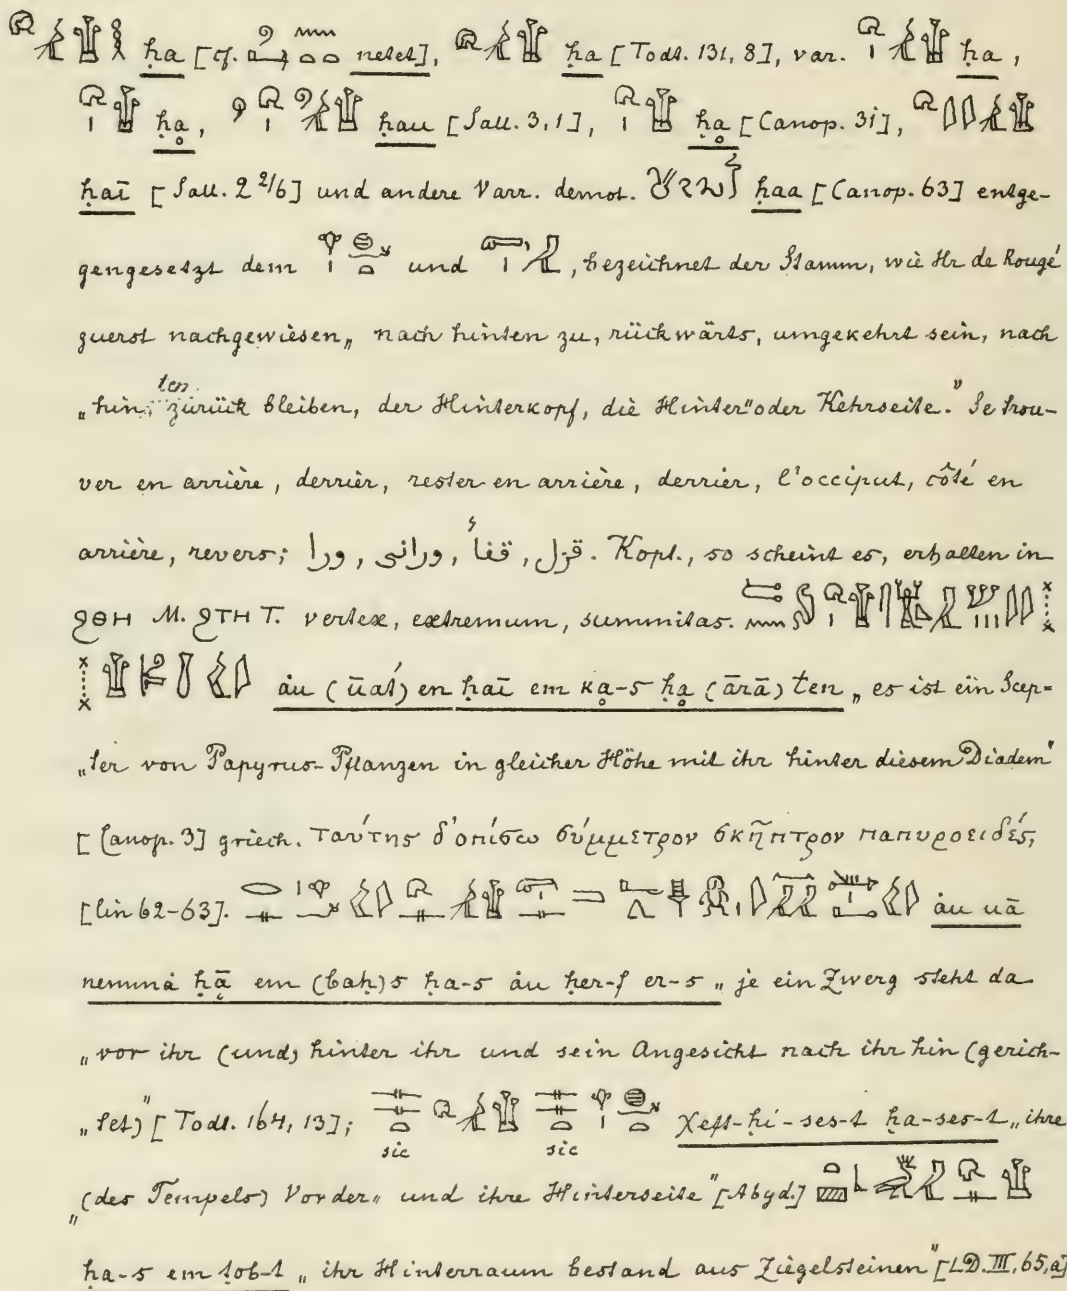 ḥa [cf. neset], ḥa [Todt. 131, 8], var. ḥa,
ḥḁ, ḥau [Sall. 3, 1], ḥḁ [Canop. 31], 
ḥaī [Sall. 2 2/6] und andere Varr. demot. ḥaa [Canop. 63] entge-
gengesetzt dem und , bezeichnet der Stamm, wie Hr de Rougé
zuerst nachgewiesen, „nach hinten zu, rückwärts, umgekehrt sein, nach
„hinten zurück bleiben, der Hinterkopf, die Hinter" oder Kehrseite." Se trou-
ver en arrière, derrièr, rester en arrière, derrièr, l'occiput, côté en
arrière, revers; ورا , ورانى , قفا , قزل. Kopt., so scheint es, erhalten in
ϩⲑⲏ M. ϩⲧⲏ T. vertex, extremum, summitas.
áu (ūat́) en ḥaī em kḁ-s ḥḁ (ārā) ten „es ist ein Scep-
„ter von Papyrus-Pflanzen in gleicher Höhe mit ihr hinter diesem Diadem"
[Canop. 3] griech. ταύτης δ'οπίσω σύμμετρον σκῆπτρον παπυροειδές,
[lin 62-63]. áu uā
nemmá ḥā em (baḥ)s ḥa-s áu ḥer-f er-s „je ein Zwerg steht da
„vor ihr (und) hinter ihr und sein Angesicht nach ihr hin (gerich-
„tet)" [Todt. 164, 13];
sic sic χeft-ḥi-ses-t ḥa-ses-t „ihre
„(des Tempels) Vorder„ und ihre Hinterseite" [Abyd.]
ḥa-s em tob-t „ihr Hinterraum bestand aus Ziegelsteinen" [LD. III, 65, a]